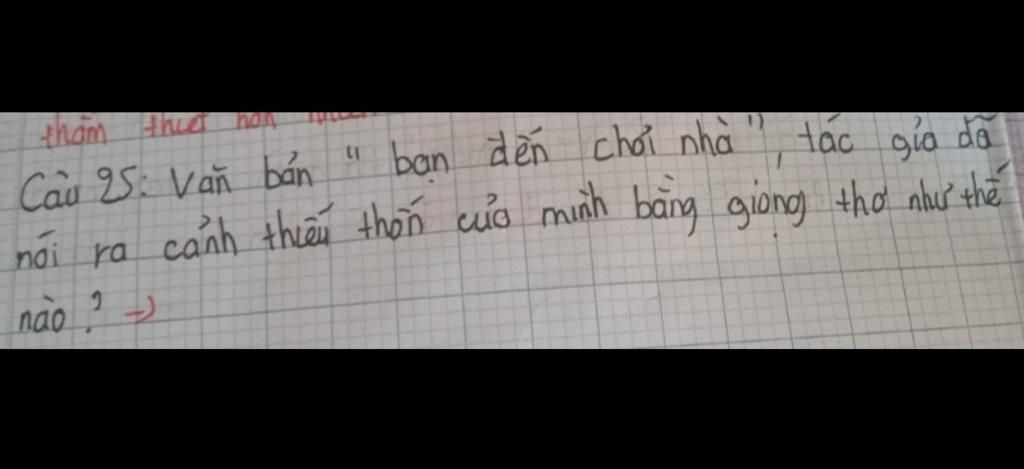 thấm thiết hơn
Câu 25: Văn bản "bạn đến chơi nhà", tác giả đã
nói ra cảnh thiếu thốn của mình bằng giọng thơ như thế
nào? →